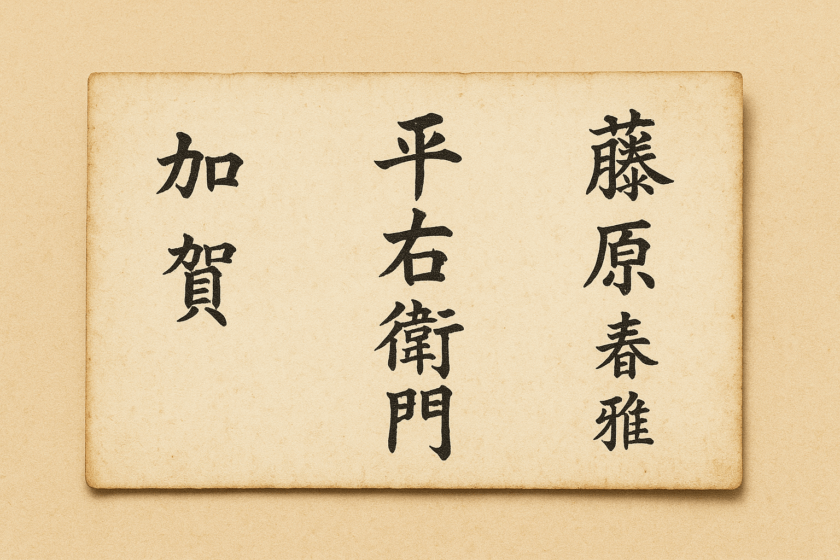 藤原春雅
平右衛門
加賀